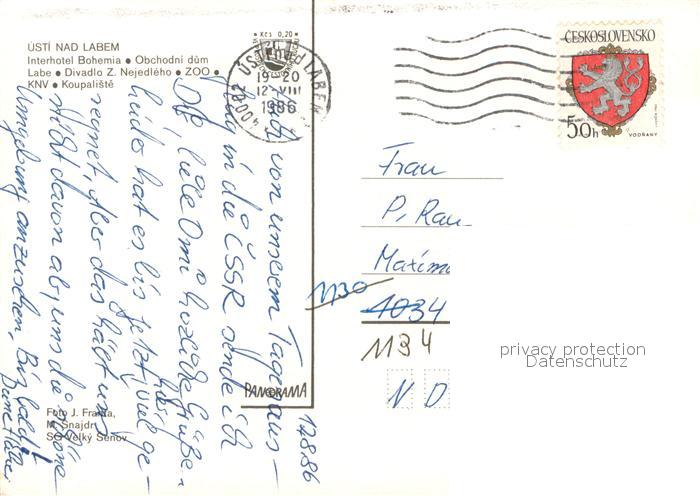 ÚSTÍ NAD LABEM
Interhotel Bohemia • Obchodní dům
Labe • Divadlo Z. Nejedlého • ZOO •
KNV • Koupaliště
Kčs 0,20
ÚSTÍ nad LABEM
19-20
12.VIII
1986
400 02
ČESKOSLOVENSKO
50h
VODŇANY
12.8.86
Auch von unserem Tagesaus-
flug in die ČSSR sende ich
Dir, liebe Omi herzliche Grüße.
Leider hat es bis jetzt viel ge-
regnet, aber das hält uns
nicht davon ab, uns die schöne
Umgebung anzusehen. Bis bald!
Frau
P. Rau
Maxim
1130
1034
1134
N D
PANORAMA
Foto J. Franta,
M. Šnajdr
SG Velký Šenov
privacy protection
Datenschutz